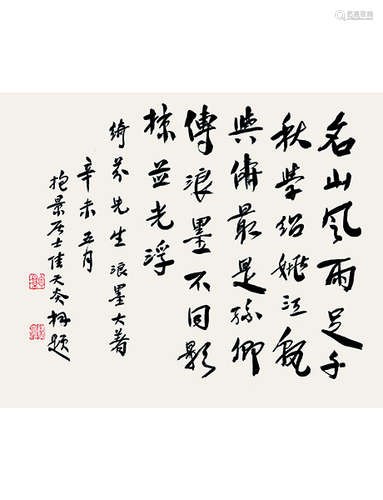 名山風雨足千
秋學紹姚江孰
與儔最是孫卿
傳浪墨不同影
掠並光浮
綺芬先生浪墨大著
辛未五月
抱景居士天拜題